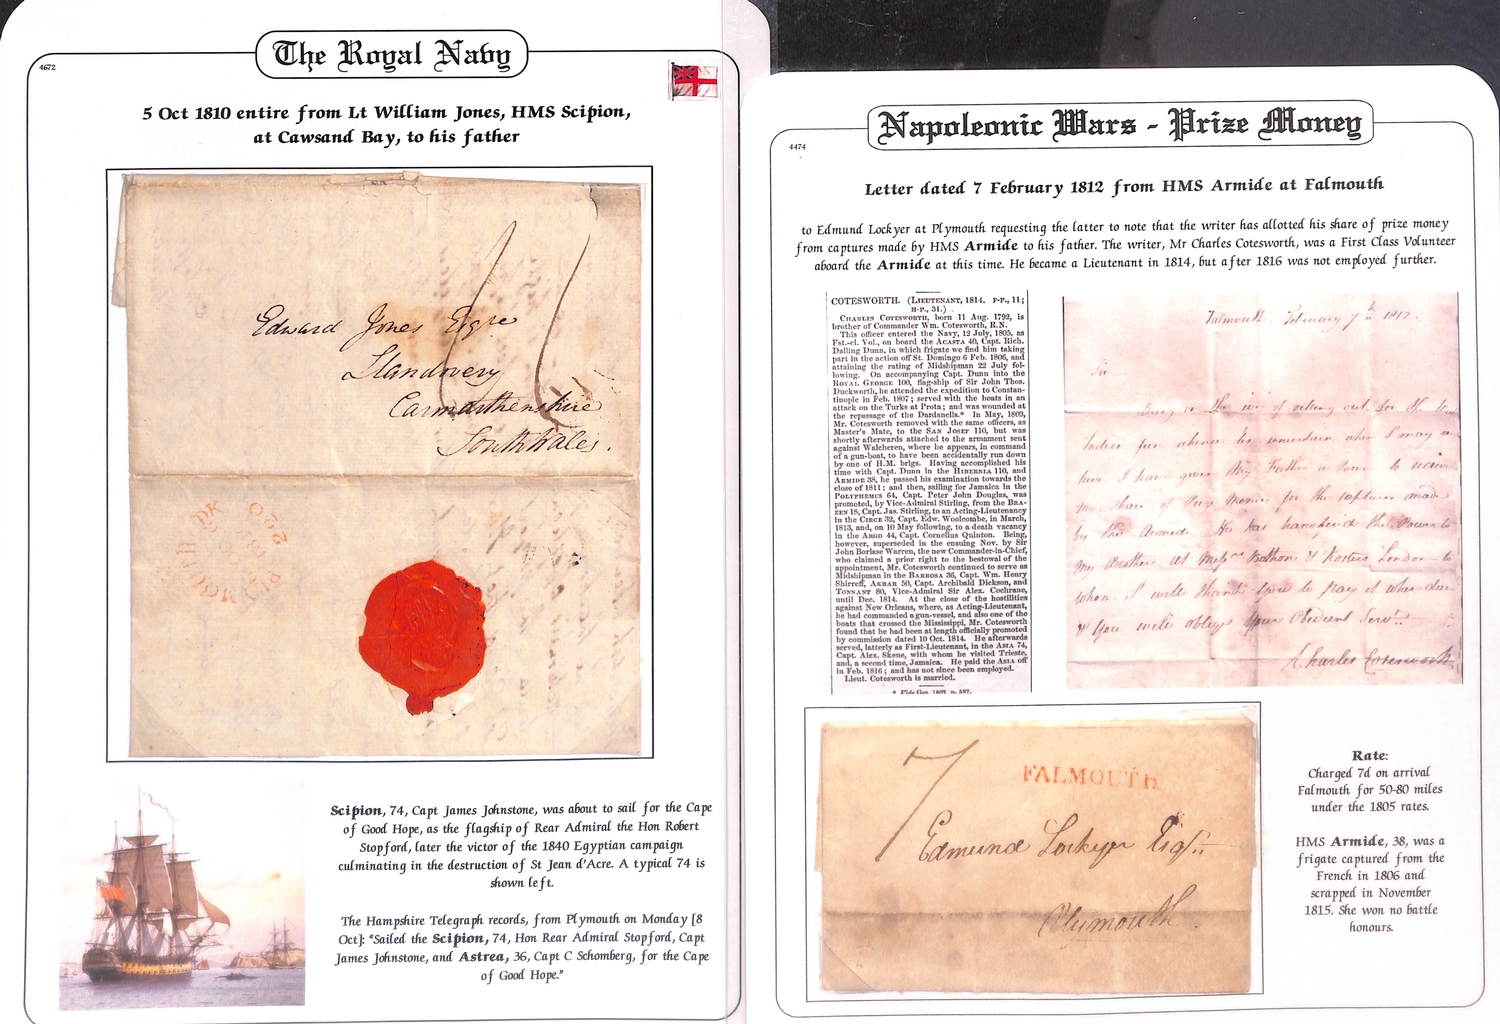 4672
The Royal Navy
5 Oct 1810 entire from Lt William Jones, HMS Scipion,
at Cawsand Bay, to his father
Edward Jones Esqre
Llandovery
Carmarthenshire
South Wales.
Scipion, 74, Capt James Johnstone, was about to sail for the Cape
of Good Hope, as the flagship of Rear Admiral the Hon Robert
Stopford, later the victor of the 1840 Egyptian campaign
culminating in the destruction of St Jean d'Acre. A typical 74 is
shown left.
The Hampshire Telegraph records, from Plymouth on Monday [8
Oct]: "Sailed the Scipion, 74, Hon Rear Admiral Stopford, Capt
James Johnstone, and Astrea, 36, Capt C Schomberg, for the Cape
of Good Hope."
4474
Napoleonic Wars - Prize Money
Letter dated 7 February 1812 from HMS Armide at Falmouth
to Edmund Lockyer at Plymouth requesting the latter to note that the writer has allotted his share of prize money
from captures made by HMS Armide to his father. The writer, Mr Charles Cotesworth, was a First Class Volunteer
aboard the Armide at this time. He became a Lieutenant in 1814, but after 1816 was not employed further.
COTESWORTH. (LIEUTENANT, 1814. F-P., 11;
H-P., 31.)
CHARLES COTESWORTH, born 11 Aug. 1792, is
brother of Commander Wm. Cotesworth, R.N.
This officer entered the Navy, 12 July, 1805, as
Fst.-cl. Vol., on board the ACASTA 40, Capt. Rich.
Dalling Dunn, in which frigate we find him taking
part in the action off St. Domingo 6 Feb. 1806, and
attaining the rating of Midshipman 22 July fol-
lowing. On accompanying Capt. Dunn into the
ROYAL GEORGE 100, flag-ship of Sir John Thos.
Duckworth, he attended the expedition to Constan-
tinople in Feb. 1807; served with the boats in an
attack on the Turks at Prota; and was wounded at
the repassage of the Dardanells.* In May, 1809,
Mr. Cotesworth removed with the same officers, as
Master's Mate, to the SAN JOSEF 110, but was
shortly afterwards attached to the armament sent
against Walcheren, where he appears, in command
of a gun-boat, to have been accidentally run down
by one of H.M. brigs. Having accomplished his
time with Capt. Dunn in the HIBERNIA 110, and
ARMIDE 38, he passed his examination towards the
close of 1811; and then, sailing for Jamaica in the
POLYPHEMUS 64, Capt. Peter John Douglas, was
promoted, by Vice-Admiral Stirling, from the BRA-
ZEN 18, Capt. Jas. Stirling, to an Acting-Lieutenancy
in the CIRCE 32, Capt. Edw. Woolcombe, in March,
1813, and, on 10 May following, to a death vacancy
in the ARGO 44, Capt. Cornelius Quinton. Being,
however, superseded in the ensuing Nov. by Sir
John Borlase Warren, the new Commander-in-Chief,
who claimed a prior right to the bestowal of the
appointment, Mr. Cotesworth continued to serve as
Midshipman in the BARROSA 36, Capt. Wm. Henry
Shirreff, AKBAR 50, Capt. Archibald Dickson, and
TONNANT 80, Vice-Admiral Sir Alex. Cochrane,
until Dec. 1814. At the close of the hostilities
against New Orleans, where, as Acting-Lieutenant,
he had commanded a gun-vessel, and also one of the
boats that crossed the Mississippi, Mr. Cotesworth
found that he had been at length officially promoted
by commission dated 10 Oct. 1814. He afterwards
served, latterly as First-Lieutenant, in the ASIA 74,
Capt. Alex. Skene, with whom he visited Trieste,
and, a second time, Jamaica. He paid the ASIA off
in Feb. 1816; and has not since been employed.
Lieut. Cotesworth is married.
* Vide Gaz. 1807, p. 597.
Falmouth February 7th 1812.
Sir
Being on the eve of setting out for the
Indies from whence it is uncertain when I may
have given my Father a Power to receive
my share of Prize Monies for the captures made
by the Armide. He has the Power to
my Brother at Messrs London to
whom I will thank you to pay it when due
& you will oblige your Obedient Servt
Charles Cotesworth
7
FALMOUTH
Edmund Lockyer Esqr
Plymouth
Rate:
Charged 7d on arrival
Falmouth for 50-80 miles
under the 1805 rates.
HMS Armide, 38, was a
frigate captured from the
French in 1806 and
scrapped in November
1815. She won no battle
honours.